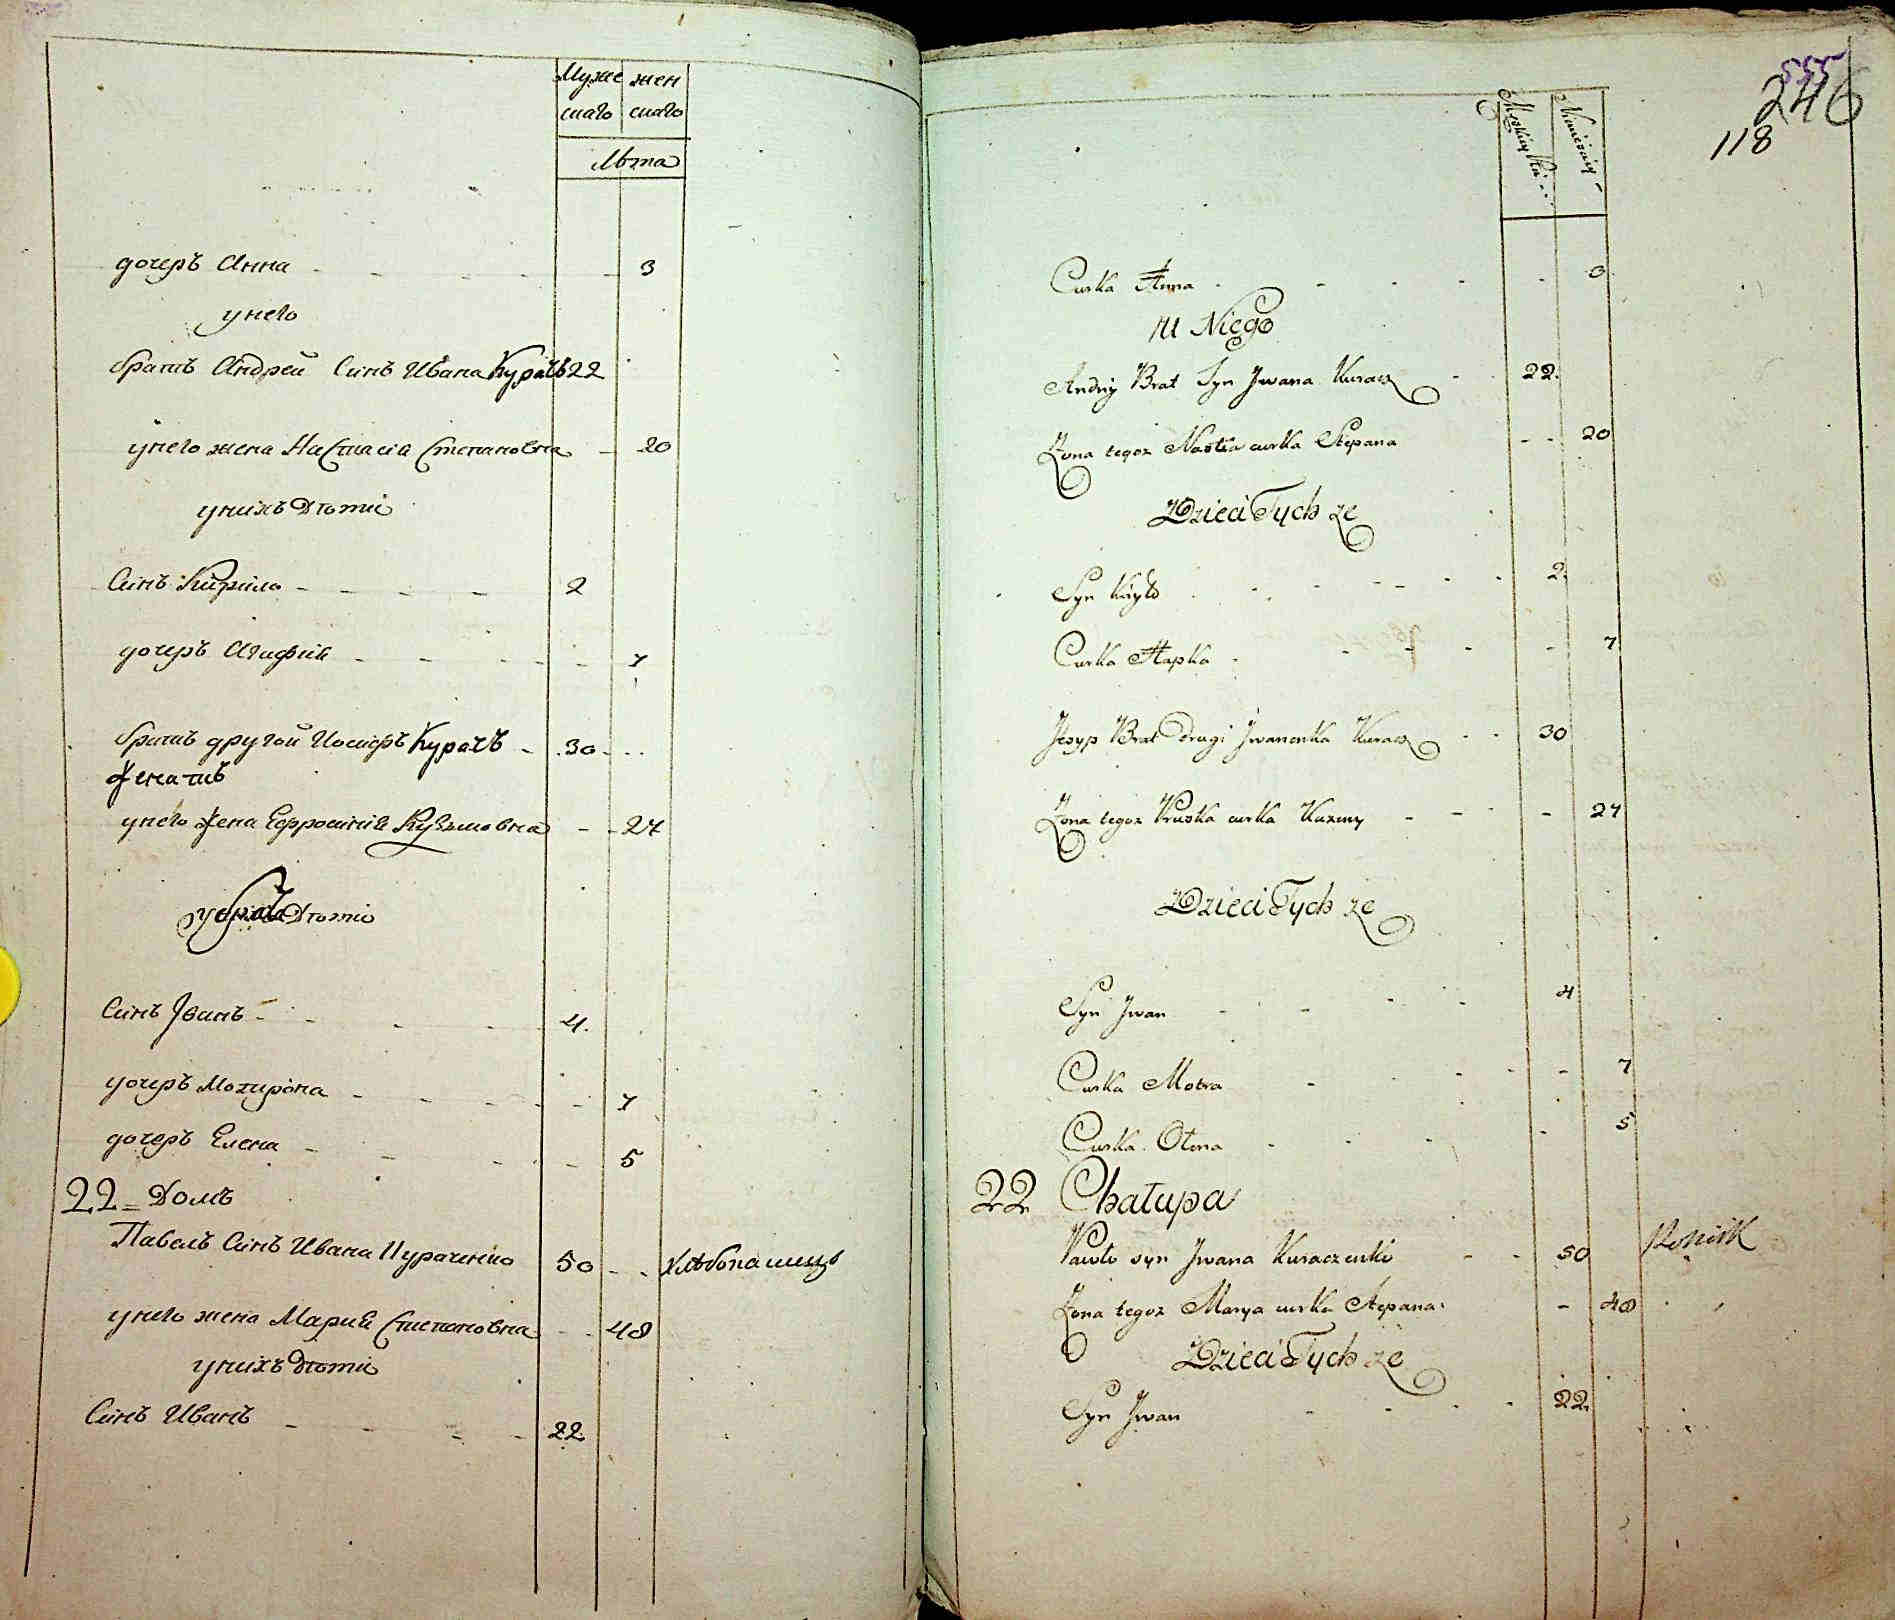 Муже жен
скаго скаго
Лѣта
дочеръ Анна 3
унего
братъ Андрей Синъ Ивана Курачъ 22
унего жена Настасія Степановна 20
унихъ Дѣти
Синъ Кирило 2
дочеръ Агафия 7
братъ другой Иосифъ Курачъ 30
женатъ
унего жена Ефросиния Кузмовна 27
Дѣти
Синъ Іванъ 4
дочеръ Мотирона 7
дочеръ Елена 5
22 = Домъ
Павелъ Синъ Ивана Кураченко 50 хлѣбопашецъ
унего жена Мария Степановна 48
унихъ дѣти
Синъ Иванъ 22
555
246
118
Curka Anna 3
u Niego
Andriy Brat Syn Jwana Kuracz 22
Zona tegoz Nastia curka Stepana 20
Dzieci Tych ze
Syn Kiryło 2
Curka Hapka 7
Jósyp Brat Drugi Jwanenka Kuracz 30
Zona tegoz Pruska curka Kuzmy 27
Dzieci Tych ze
Syn Jwan 4
Curka Motra 7
Curka Olena 5
22 Chałupa
Pawło syn Jwana Kuraczenko 50 Rolnik
Zona tegoz Marya curka Stepana 48
Dzieci Tych ze
Syn Jwan 22